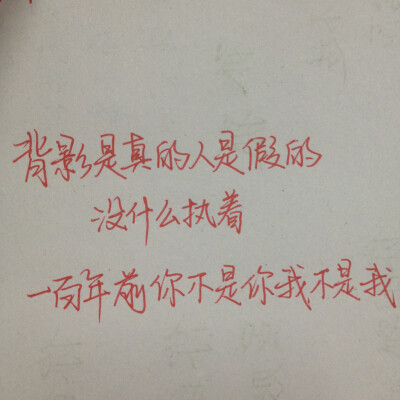 背影是真的人是假的
没什么执着
一百年前你不是你我不是我